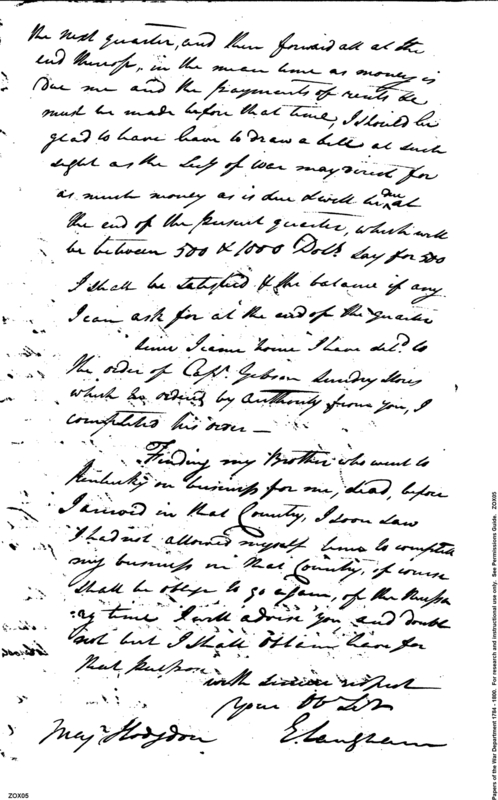 the next quarter, and then forward all at the
end thereof, in the mean time as money is
due me and the payments of rents &c
must be made before that time, I should be
glad to have leave to draw a bill at such
sight as the Secy of War may direct for
as much money as is due & will be due at
the end of the present quarter, which will
be between 500 & 1000 Dolls. say for 500
I shall be satisfied & the balance if any
I can ask for at the end of the quarter
Since I came home I have deld. to
the order of Capt. Gibson Sundry Stores
which he ordered by authority from you, I
completed his order —
Finding my Brother who went to
Kentucky on business for me, dead, before
I arrived in that Country, I soon saw
I had not allowed myself time to complete
my business in that Country, of course
shall be oblige to go again, of the necessa
:ry time I will advise you and doubt
not but I shall obtain leave for
that purpose
with sincere respect
Your Ob Svt
Majr. Hodgdon E Langham
ZOX05
Papers of the War Department 1784 - 1800. For research and instructional use only. See Permissions Guide. ZOX05